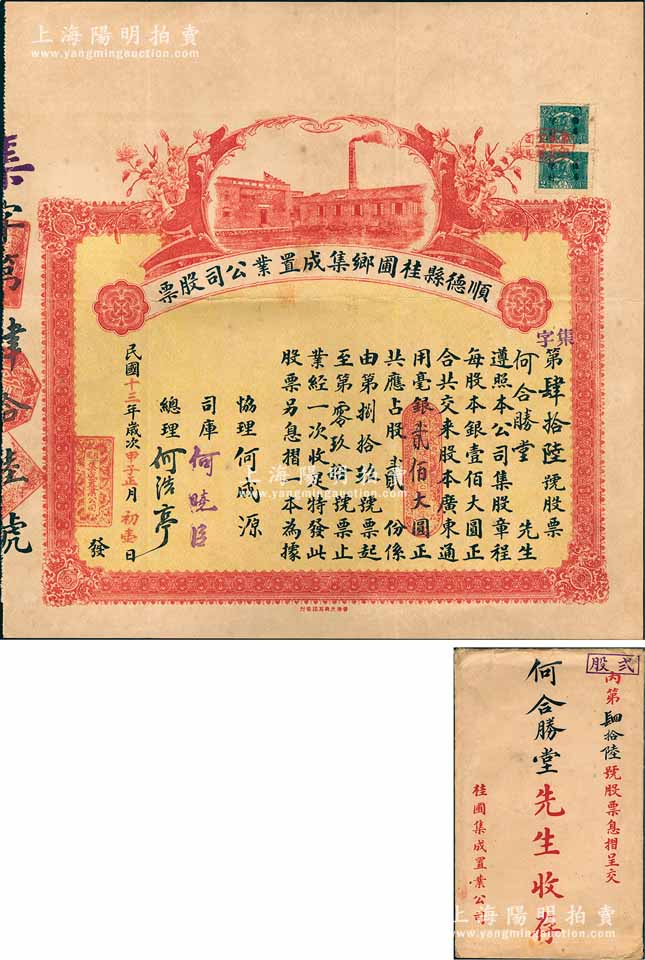 上海陽明拍賣
www.yangmingauction.com
順德縣桂圃鄉集成置業公司股票
集字
第肆拾陸號股票
何合勝堂 先生
遵照本公司集股章程
每股本銀壹佰大圓正
合共交來股本廣東通
用毫銀貳佰大圓正
共應占股貳 份係
由第捌拾 號票起
至第零玖拾 號票止
業經一次收足特發此
股票另息摺一本為據
協理 何 源
司庫 何曉臣
總理 何浩亭
民國十三年歲次甲子正月初壹日 發
集字第肆拾陸號
上海陽明拍賣
www.yangmingauction.com
上海陽明拍賣
www.yangmingauction.com
貳股
內第肆拾陸號股票息摺呈交
何合勝堂先生收存
桂圃集成置業公司
上海陽明拍賣
www.yangmingauction.com